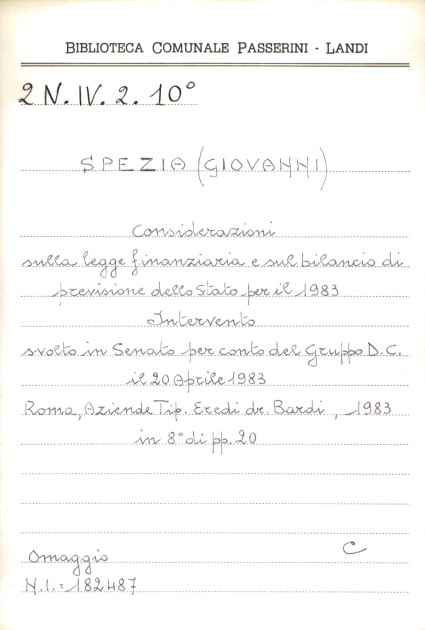 BIBLIOTECA COMUNALE PASSERINI - LANDI
2 N. IV. 2. 10°
SPEZIA (GIOVANNI)
Considerazioni
sulla legge finanziaria e sul bilancio di
previsione dello Stato per il 1983
Intervento
svolto in Senato per conto del Gruppo D.C.
il 20 Aprile 1983
Roma, Aziende Tip. Eredi dr. Bardi, 1983
in 8° di pp. 20
C
Omaggio
N.I.: 182487